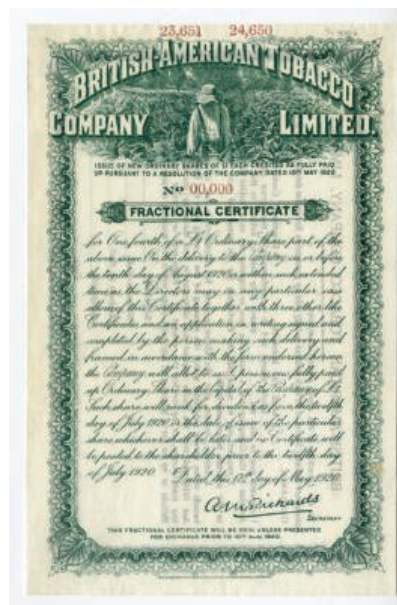 23,651 24,650
BRITISH-AMERICAN TOBACCO
COMPANY LIMITED.
ISSUE OF NEW ORDINARY SHARES OF £1 EACH CREDITED AS FULLY PAID
UP PURSUANT TO A RESOLUTION OF THE COMPANY DATED 10TH MAY 1920
No 00,000
FRACTIONAL CERTIFICATE
for One fourth of a £1 Ordinary Share part of the
above issue On the delivery to the Company on or before
the tenth day of August 1920 or within such extended
time as the Directors may in any particular case
allow of this Certificate together with three other like
Certificates and an application in writing signed and
completed by the person making such delivery and
framed in accordance with the form endorsed hereon
the Company will allot to such person one fully paid
up Ordinary Share in the Capital of the Company of £1.
Such share will rank for dividend as from the twelfth
day of July 1920 or the date of issue of the particular
share whichever shall be later and no Certificate will
be posted to the shareholder prior to the twelfth day
of July 1920 Dated this day of May 1920
Secretary
THIS FRACTIONAL CERTIFICATE WILL BE VOID UNLESS PRESENTED
FOR EXCHANGE PRIOR TO 10TH AUG. 1920.